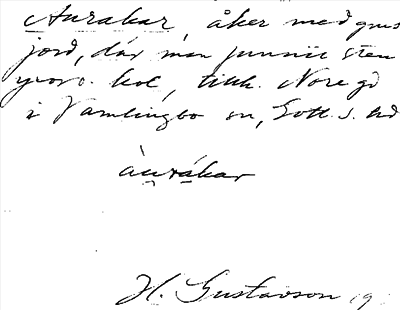 Aurakar, åker med grus
jord, där man funnit sten
yxor o. kol, tillh. Nore gd
i Vamlingbo sn, Gotl. s. hd
àurákar
H. Gustavson 19